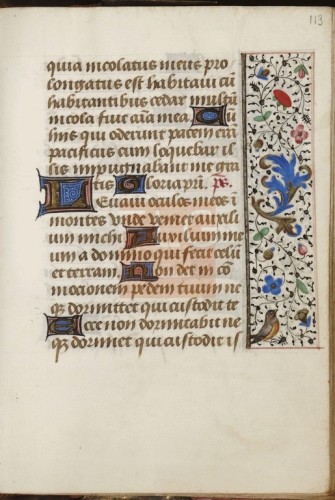 113
quia incolatus meus pro
longatus est habitavi cū
habitantibus cedar multū
incola fuit aīa mea Cū
hiis qui oderunt pacem erā
pacificus cum loquebar il
lis impugnabant me gra
tis Gloria pri ps
Levavi oculos meos ī
montes unde veniet auxili
um michi Auxilium me
um a domino qui fecit celū
et terram Non det in cō
mocionem pedem tuum ne
qʒ dormitet qui custodit te
Ecce non dormitabit ne
qʒ dormiet qui custodit is